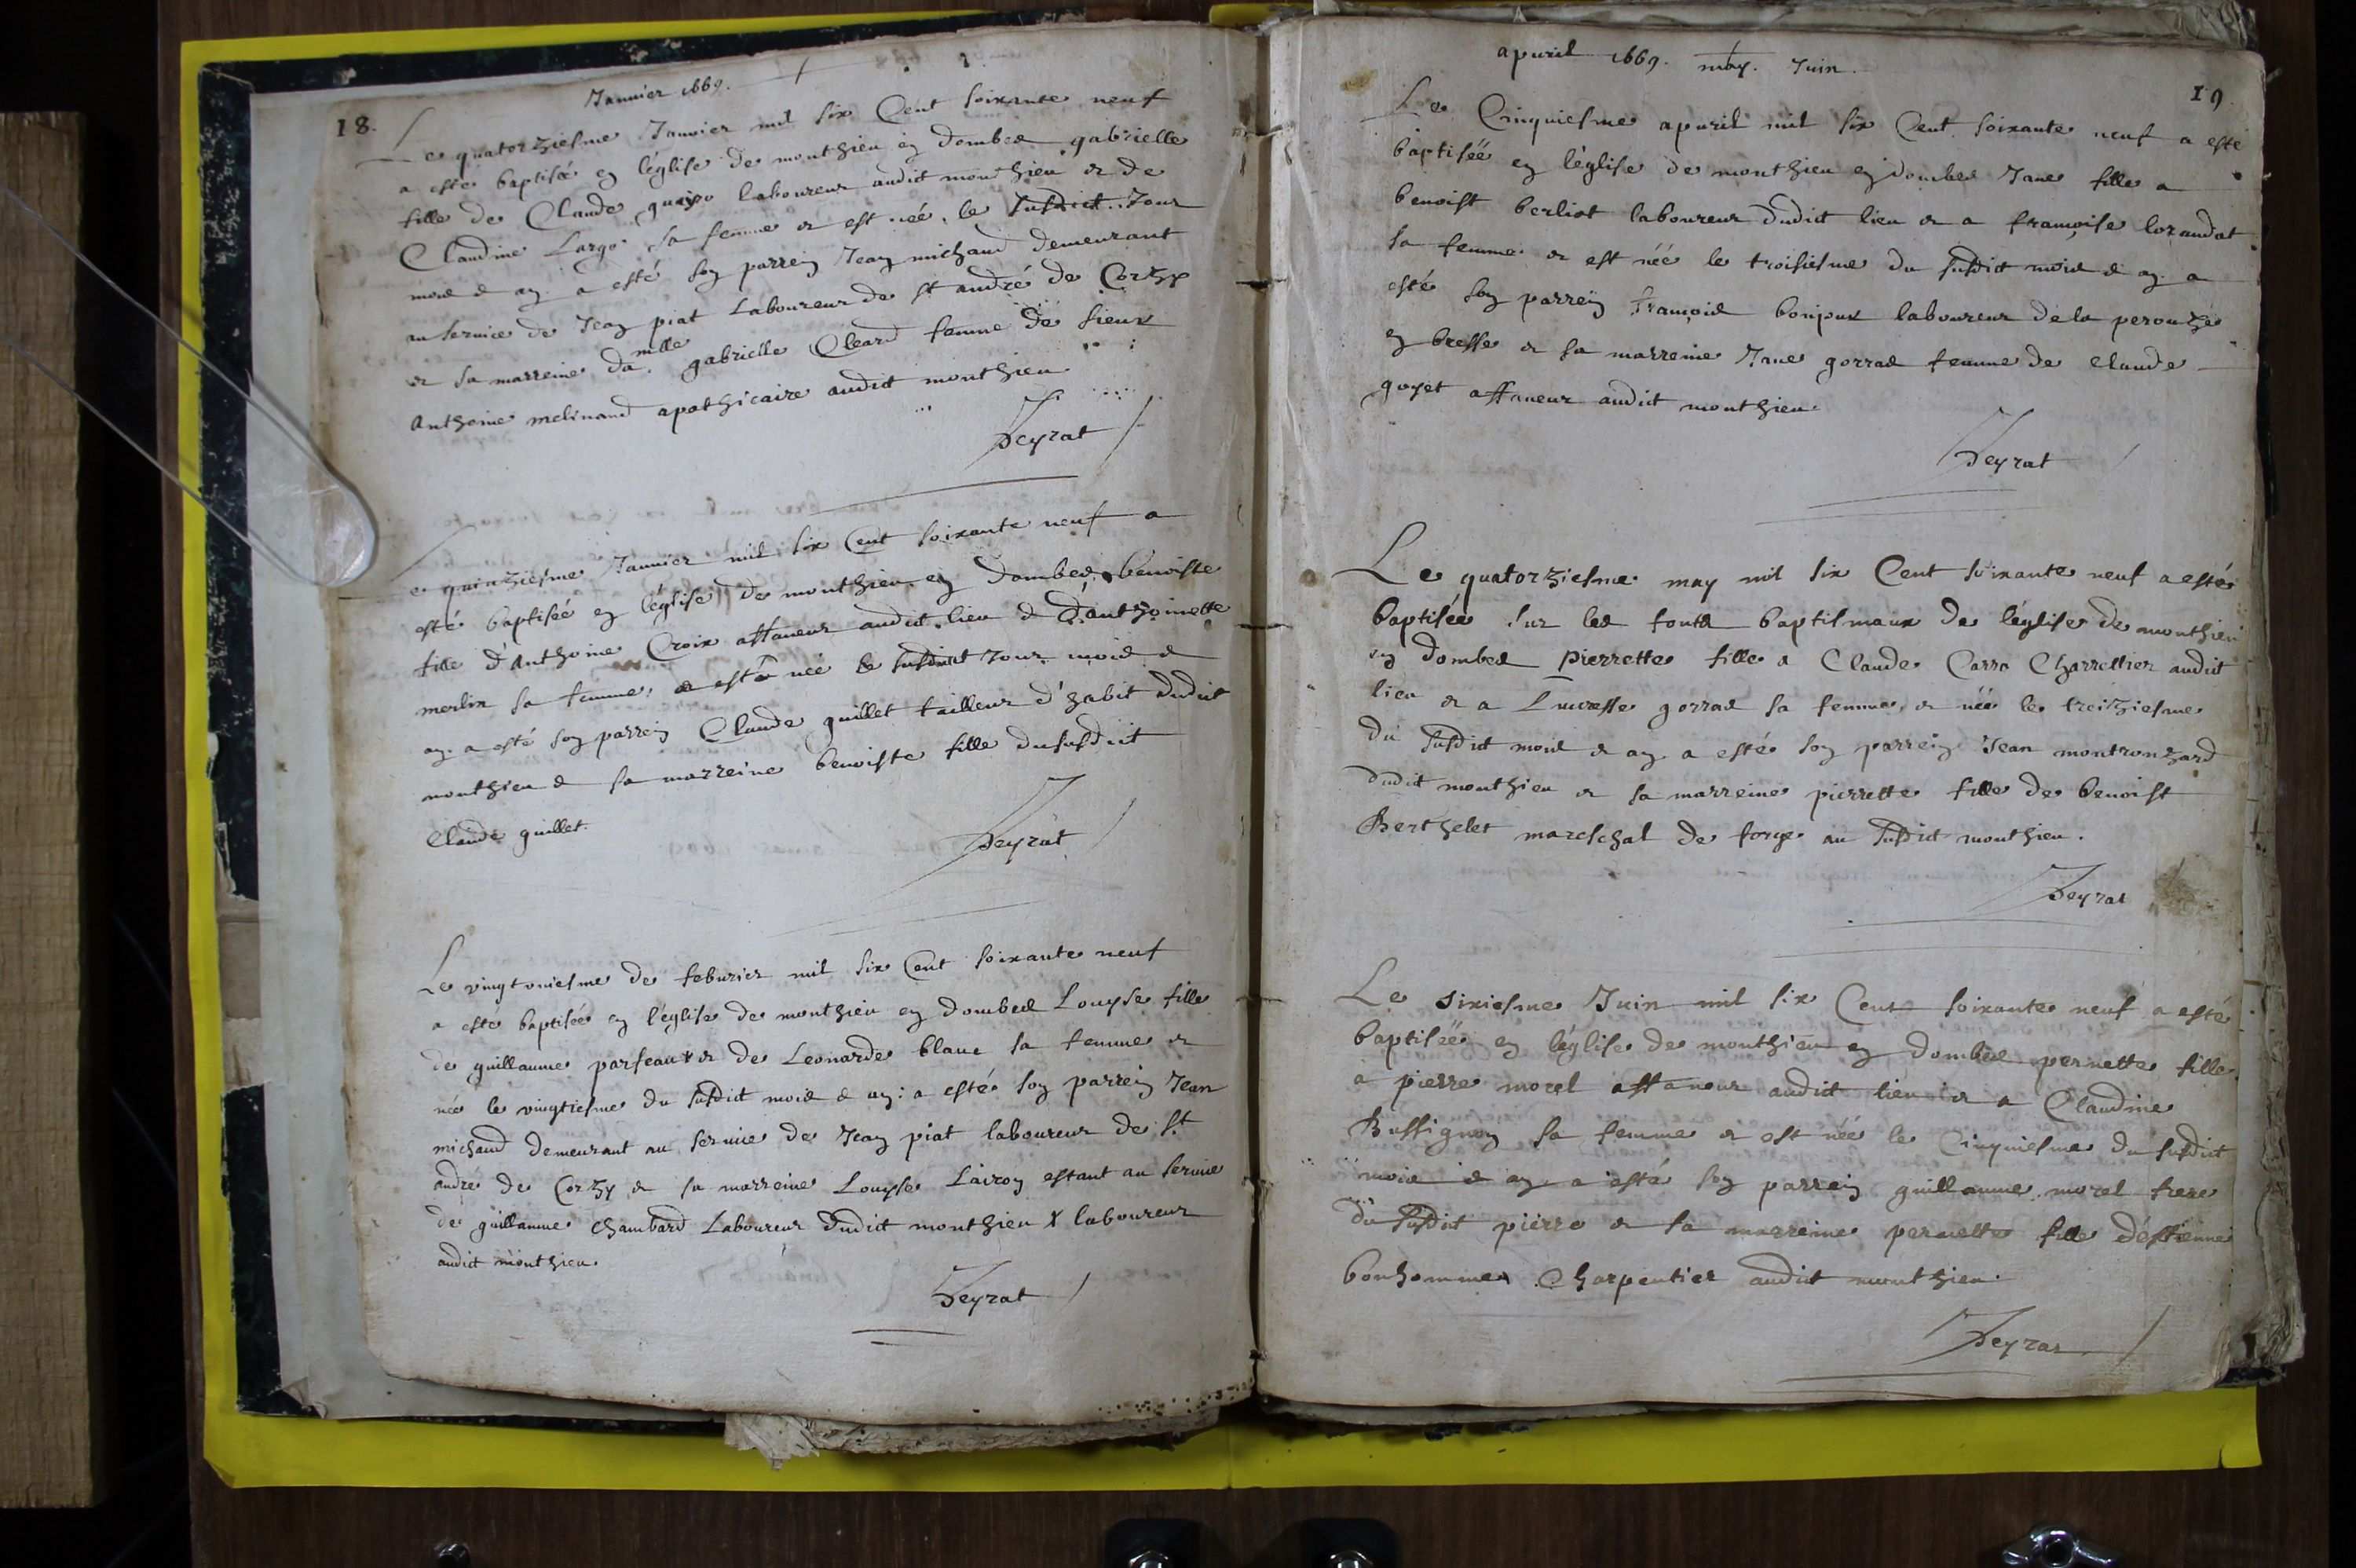 Januier 1669.
18.
Le quatorziesme Januier mil six Cent soixante neuf
a esté baptisée en l'église de monthieu en dombes gabrielle
fille de Claude laboureur audict monthieu & de
Claudine Large sa femme & est née le susdict Jour
mois & an. a esté son parrein Jean michaud demeurant
au seruice de Jean piat Laboureur de st andré de Corzy
& sa marreine da.mlle gabrielle Cleard femme de sieur
Anthoine melinand apothicaire audict monthieu
Peyrat
Le quinziesme Januier mil six Cent soixante neuf a
esté baptisée en l'église de monthieu en dombes benoiste
fille d'Anthoine Croix affaneur audict lieu & d'anthoinette
merlin sa femme, & est née le susdict Jour mois &
an. a esté son parrein Claude guillet tailleur d'habit dudict
monthieu & sa marreine benoiste fille dususdict
Claude guillet.
Peyrat
Le vingtuniesme de feburier mil six Cent soixante neuf
a esté baptisée en l'église de monthieu en dombes Louyse fille
de guillaume parseau x & de Leonarde blanc sa femme &
née le vingtiesme du susdict mois & an: a esté son parrein Jean
michaud demeurant au seruice de Jean piat laboureur de st
andré de Corzy & sa marreine Louyse Lairon estant au seruice
de guillaume chambard Laboureur dudict monthieu x laboureur
audict monthieu.
Peyrat
apuril 1669. may. Juin.
19.
Le Cinquiesme apuril mil six Cent soixante neuf a esté
baptisée en l'église de monthieu en dombes Jane fille a
benoist berliot laboureur dudict lieu & a françoise lorandat
sa femme & est née le troisiesme du susdict mois & an. a
esté son parrein françois bonjour laboureur de la perouze
en bresse & sa marreine Jane gorras femme de Claude
goyet affaneur audict monthieu.
Peyrat
Le quatorziesme may mil six Cent soixante neuf a esté
baptisée sur les fonts baptismaux de l'église de monthieu
en dombes pierrette fille a Claude Carra Charrettier audict
lieu & a Lucresse gorras sa femme, & née le treiziesme
du susdict mois & an. a esté son parrein Jean montronzard
dudict monthieu & sa marreine pierrette fille de benoist
Berthelet mareschal de forge au susdict monthieu.
Peyrat
Le sixiesme Juin mil six Cent soixante neuf a esté
baptisée en l'église de monthieu en dombes pernette fille
a pierre morel affaneur audict lieu & a Claudine
Bussignon sa femme & est née le Cinquiesme du susdict
mois & an. a esté son parrein guillaume morel frere
du susdict pierre & sa marreine pernette fille d'estienne
bonhomme Charpentier audict monthieu.
Peyrat